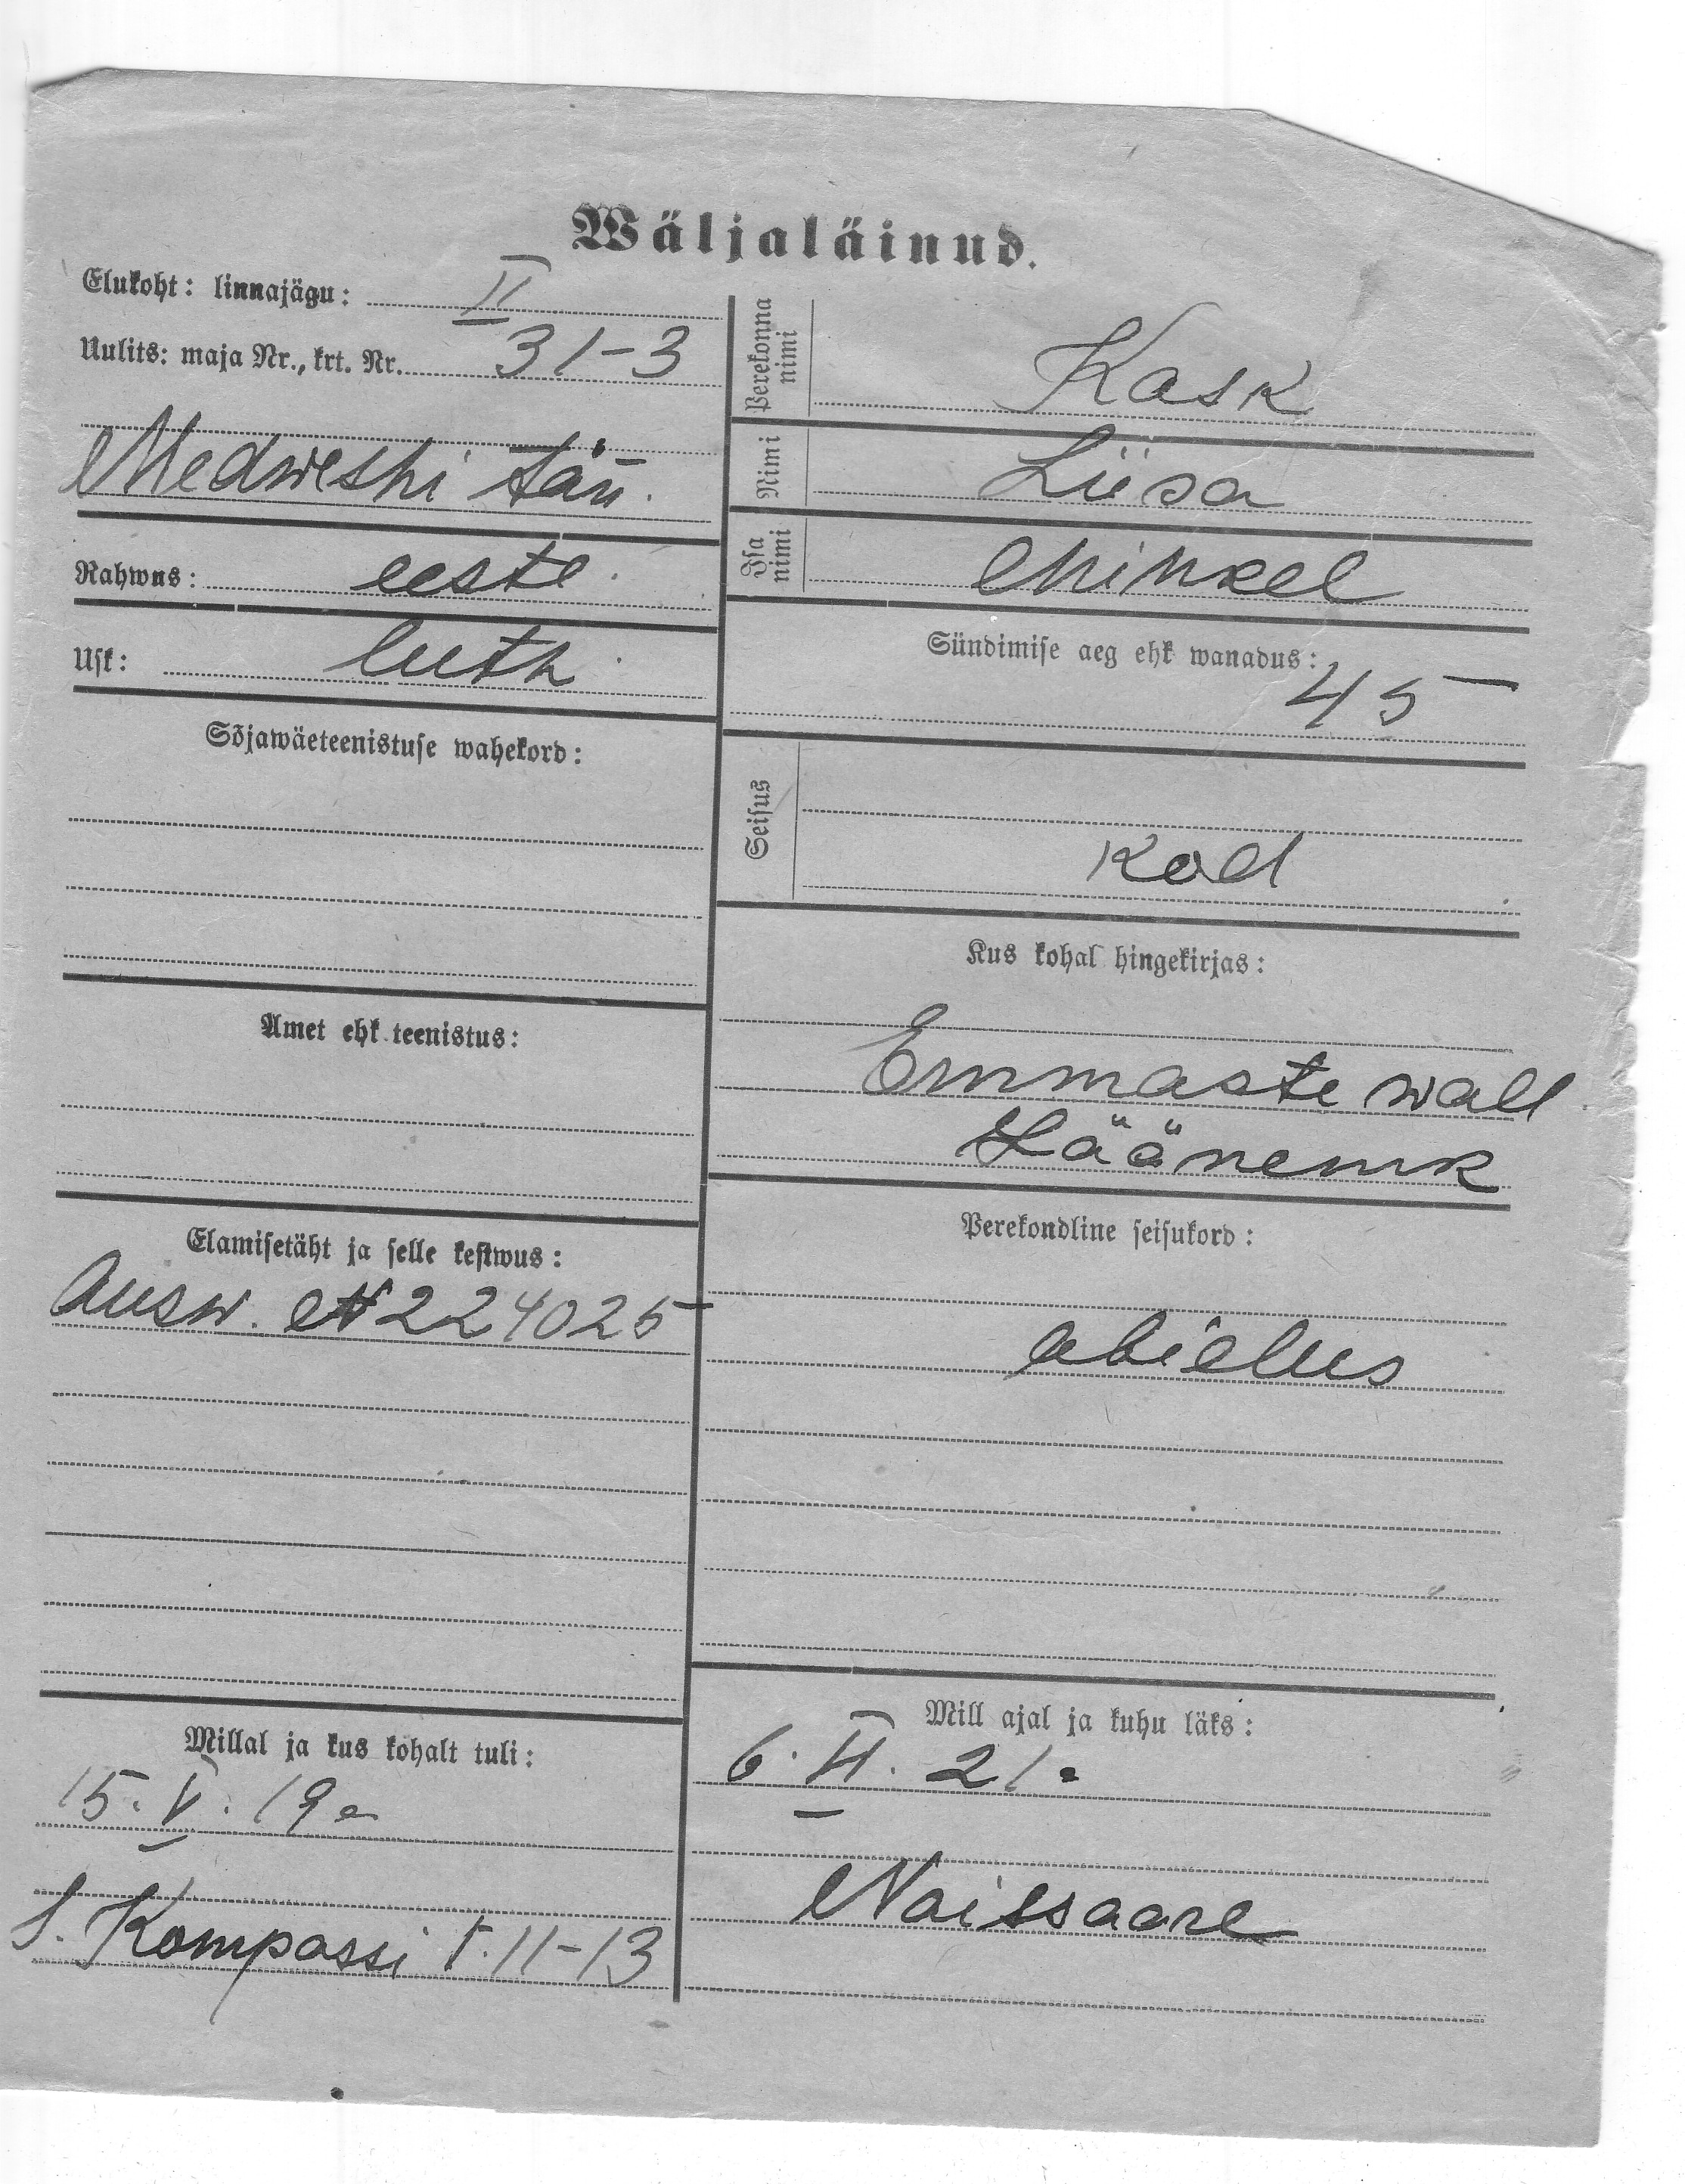 Wäljaläinud.
Elukoht: linnajägu: II
Uulits: maja Nr., krt. Nr. 31-3
Medweshi tän.
Rahwus: eeste
Usk: luth
Sõjawäeteenistuse wahekord:
Amet ehk teenistus:
Elamisetäht ja selle kestwus:
Ausw. N 224025
Millal ja kus kohalt tuli:
15. V. 19 a
S. Kompassi t. 11-13
Perekonna nimi Kask
Nimi Liisa
Isa nimi Mihkel
Sündimise aeg ehk wanadus:
45
Seisus
kod
Kus kohal hingekirjas:
Emmaste wall
Läänemk
Perekondline seisukord:
abielus
Mill ajal ja kuhu läks:
6. II. 21 a
Naissaare